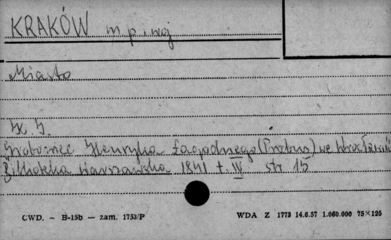 KRAKÓW m. p. i woj
Miasto
W. J.
Grobowiec Henryka Łagodnego (Probus) we Wrocławiu
Biblioteka Warszawska 1841 t. IV str 15
CWD. — B-15b — zam. 1753/P WDA Z 1773 14.6.57 1.060.000 75×125